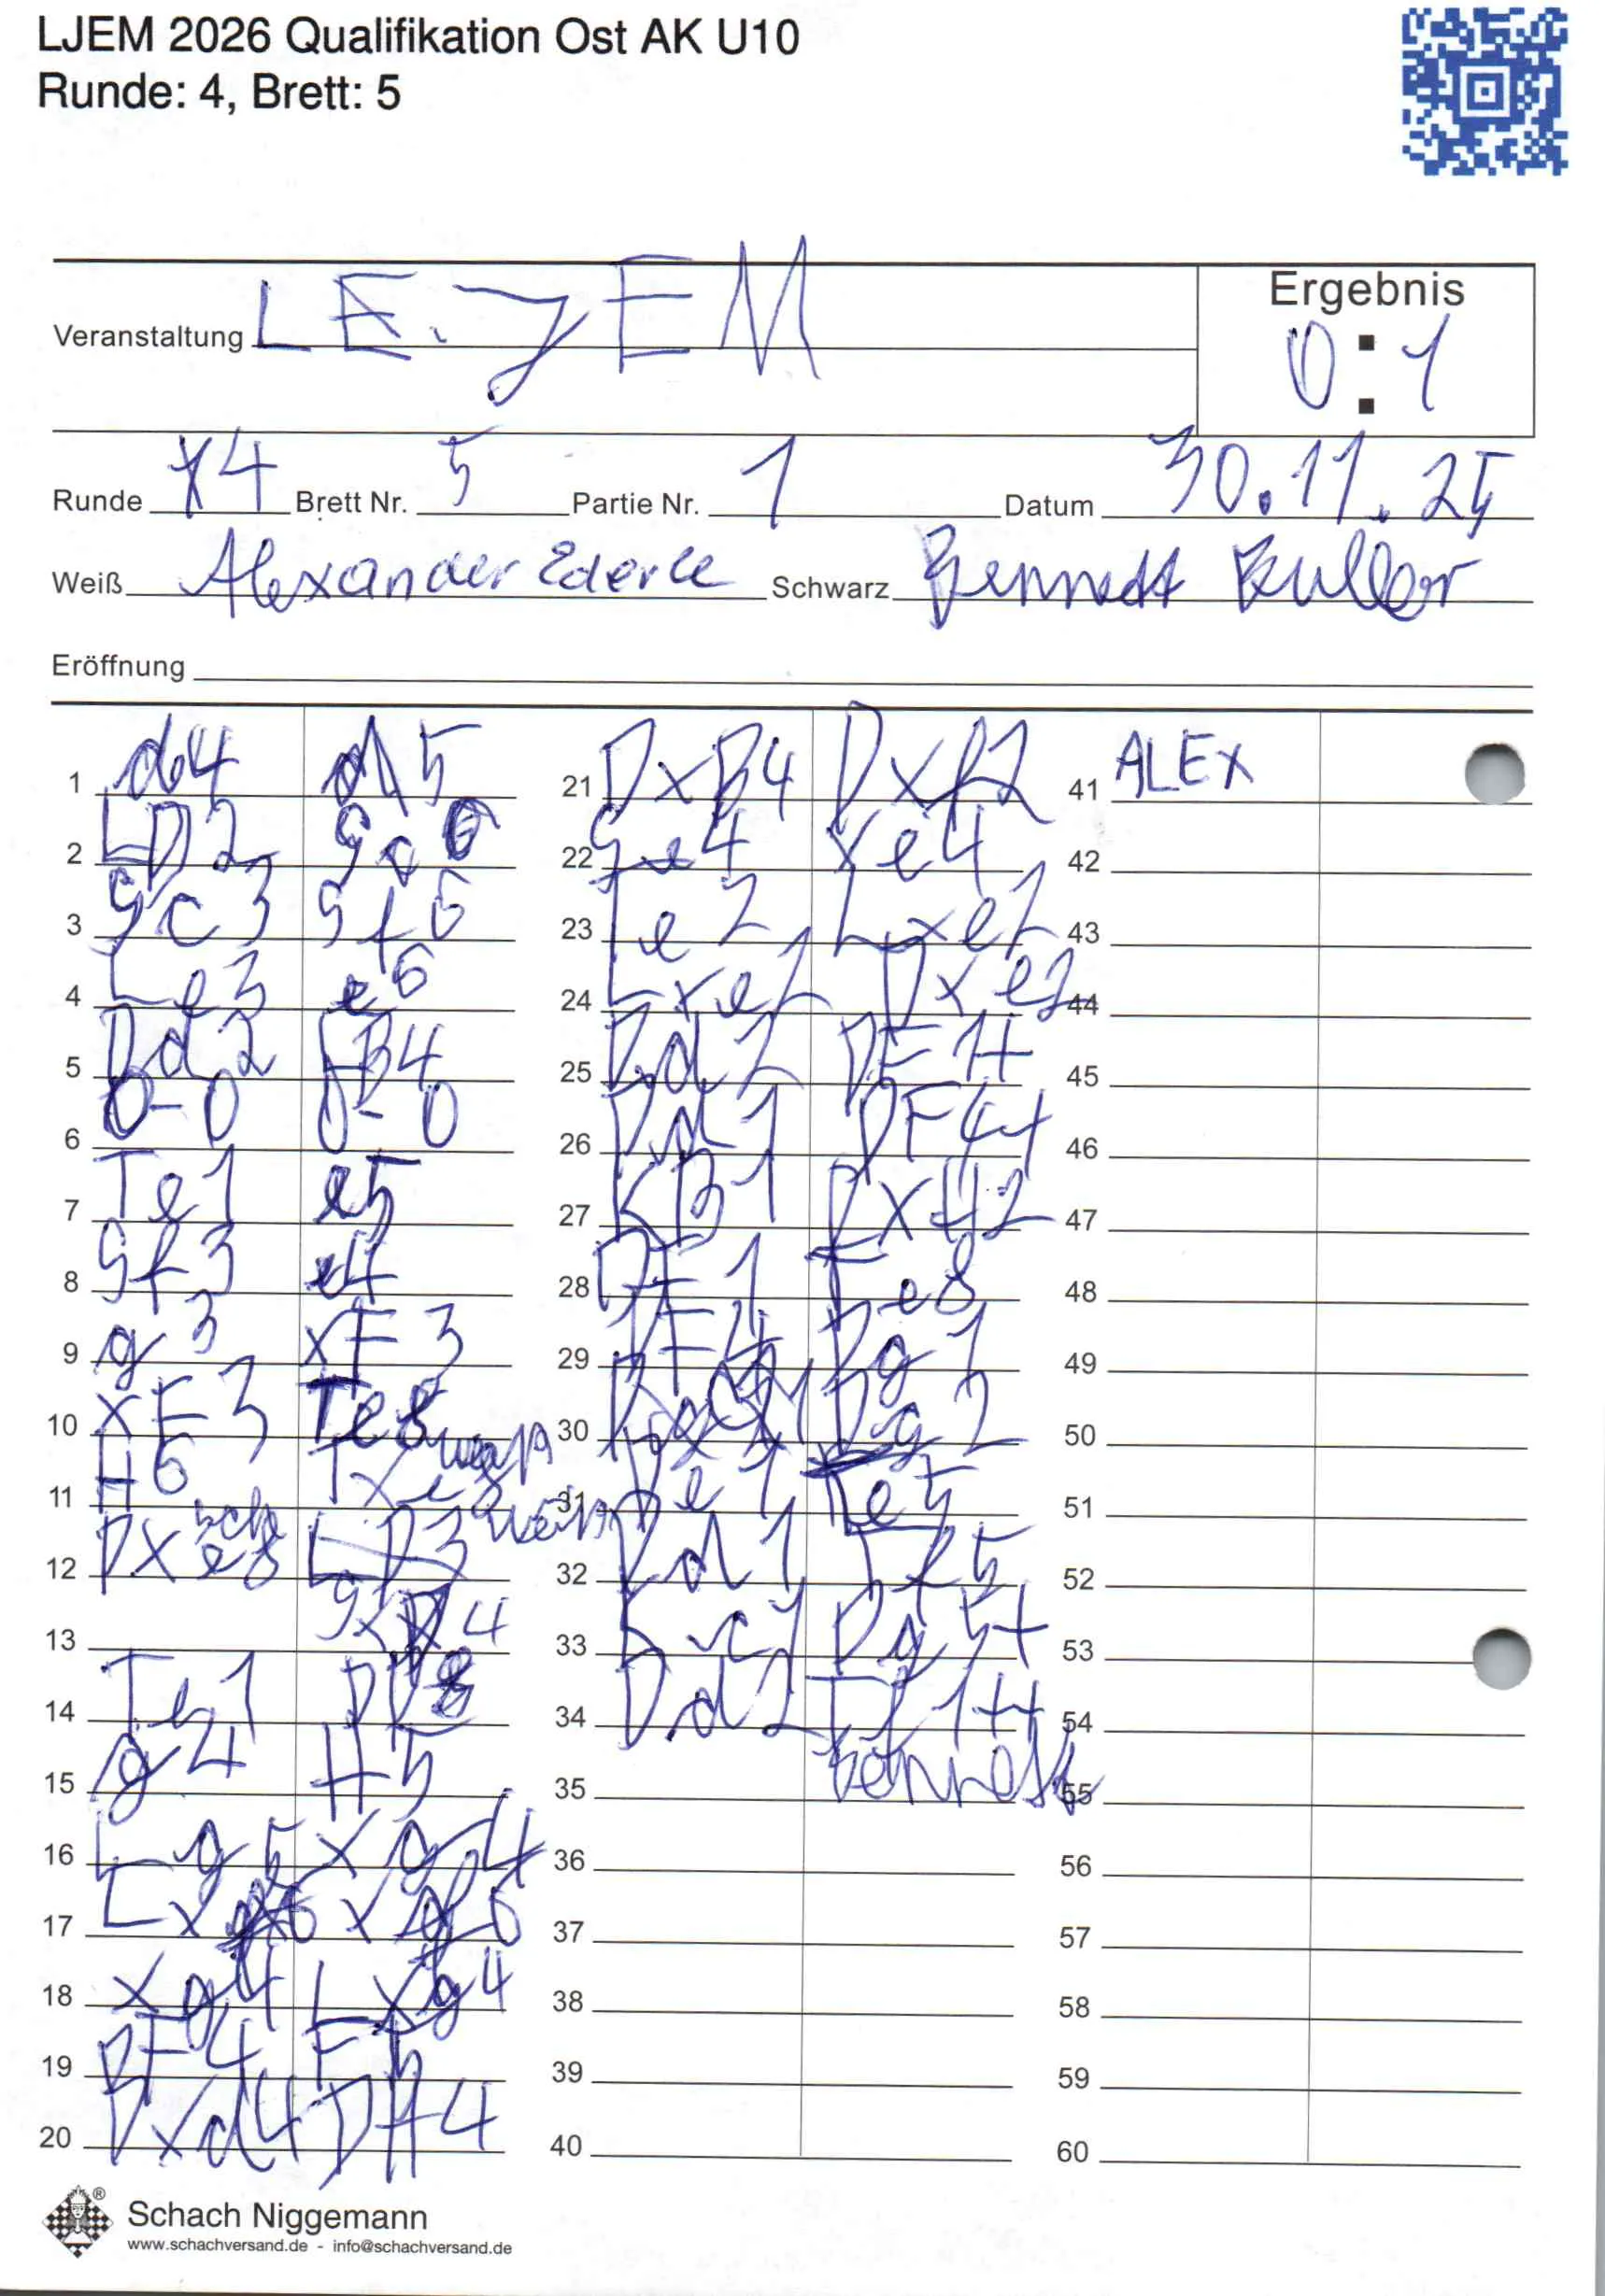 LJEM 2026 Qualifikation Ost AK U10
Runde: 4, Brett: 5
Veranstaltung LE. JEM
Ergebnis
0:1
Runde 4 Brett Nr. 5 Partie Nr. 1 Datum 30.11.25
Weiß Alexander Ederle Schwarz Bennett Buller
Eröffnung
1 d4 d5
2 LD2 Sc6
3 Sc3 Sf6
4 Le3 e6
5 Dd2 LB4
6 0-0 0-0
7 Te1 e5
8 Sf3 e4
9 g3 xF3
10 xF3 Te8
11 H6 Txe3
12 Dxe3 LD3
13 SxD4
14 Te1 DD8
15 g4 H5
16 Lg5 xg4
17 Lxf6 xf6
18 xg4 Lxg4
19 DF4 F5
20 Dxd4 DH4
21 DxB4 Dxf2
22 Se4 xe4
23 Le2 Lxe2
24 Lxe2 Dxe2
25 Dd2 DF1+
26 Dd1 DF4+
27 KB1 DxH2
28 DF1 Te8
29 DF4 Dg1
30 Dg2
31 De1 Te5
32 Dd1 Tf5
33 Kc1 Dg5+
34 Dd2 Tf1++
35 Bennett
36
37
38
39
40
41 ALEX
42
43
44
45
46
47
48
49
50
51
52
53
54
55
56
57
58
59
60
Schach Niggemann
www.schachversand.de - info@schachversand.de